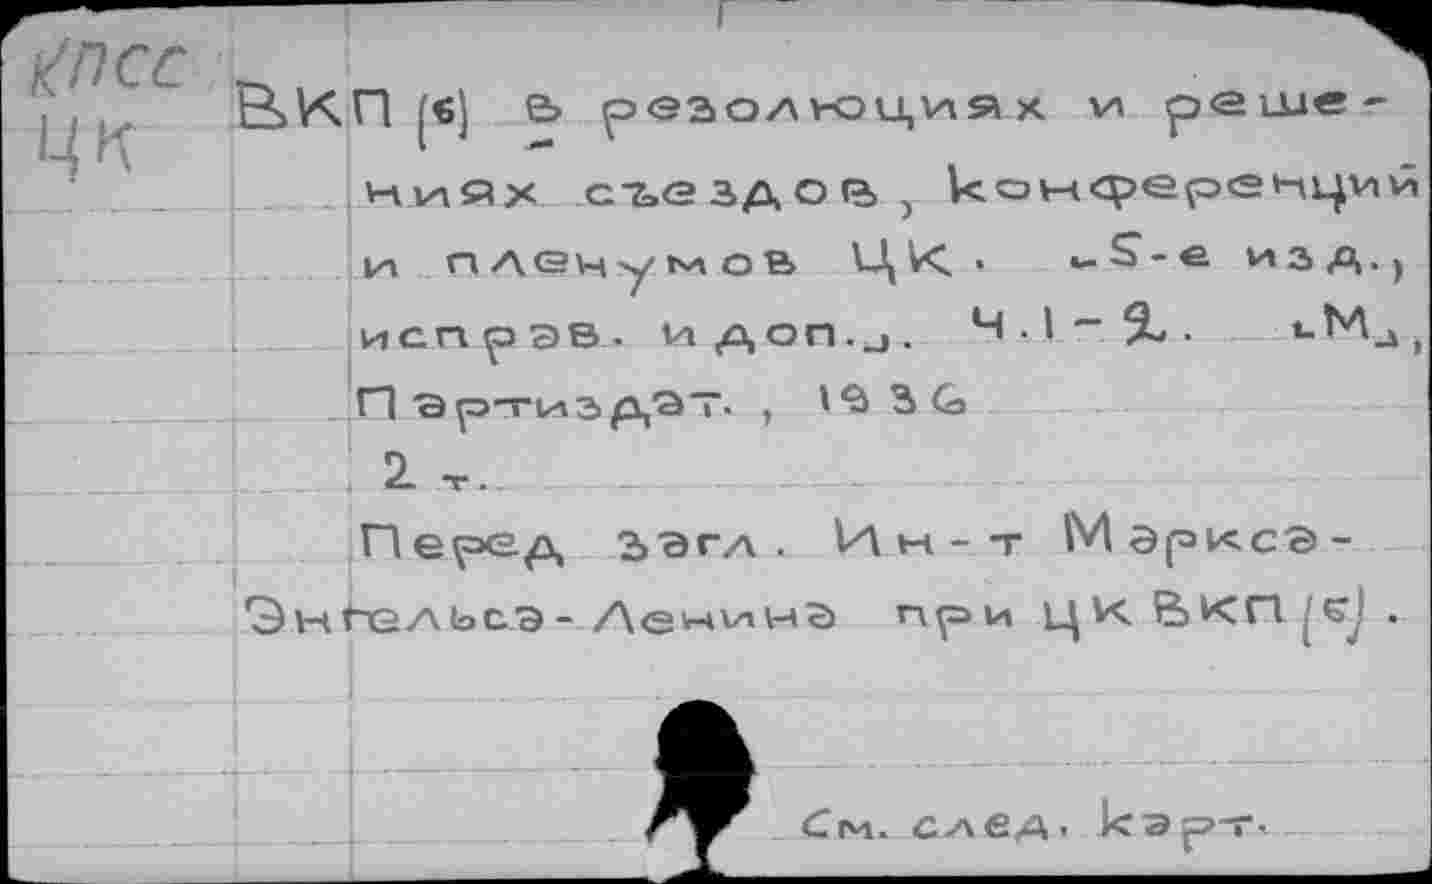 КПСС
ЦК
ВКП(б) в резолюциях и реше-
ниях съездов, конференций
и пленумов ЦК. [5-е изд.,
исправ. и доп.]. Ч.1-2. [М],
Партиздат., 1936
2 т.
Перед загл. Ин-т Маркса-
Энгельса-Ленина при ЦК ВКП(б).
См. след. карт.